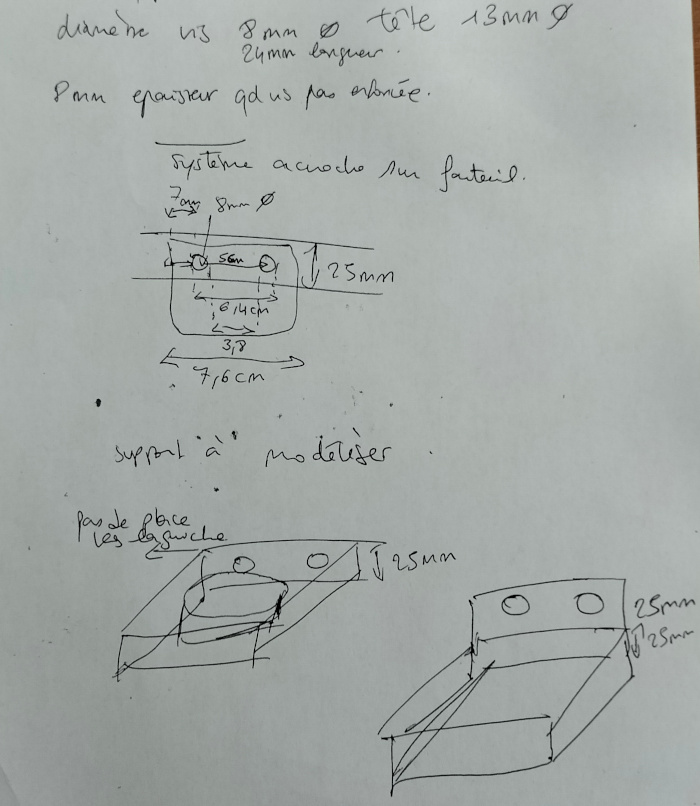 diamètre vis 8mm ø tête 13mm ø
24mm longueur.
8mm epaisseur qd vis pas enfoncée.
système accroche sur fauteuil.
7mm 8mm ø
25mm
6,4cm
3,8
7,6cm
support "à" modéliser.
pas de place
vers la gauche
25mm
25mm
25mm